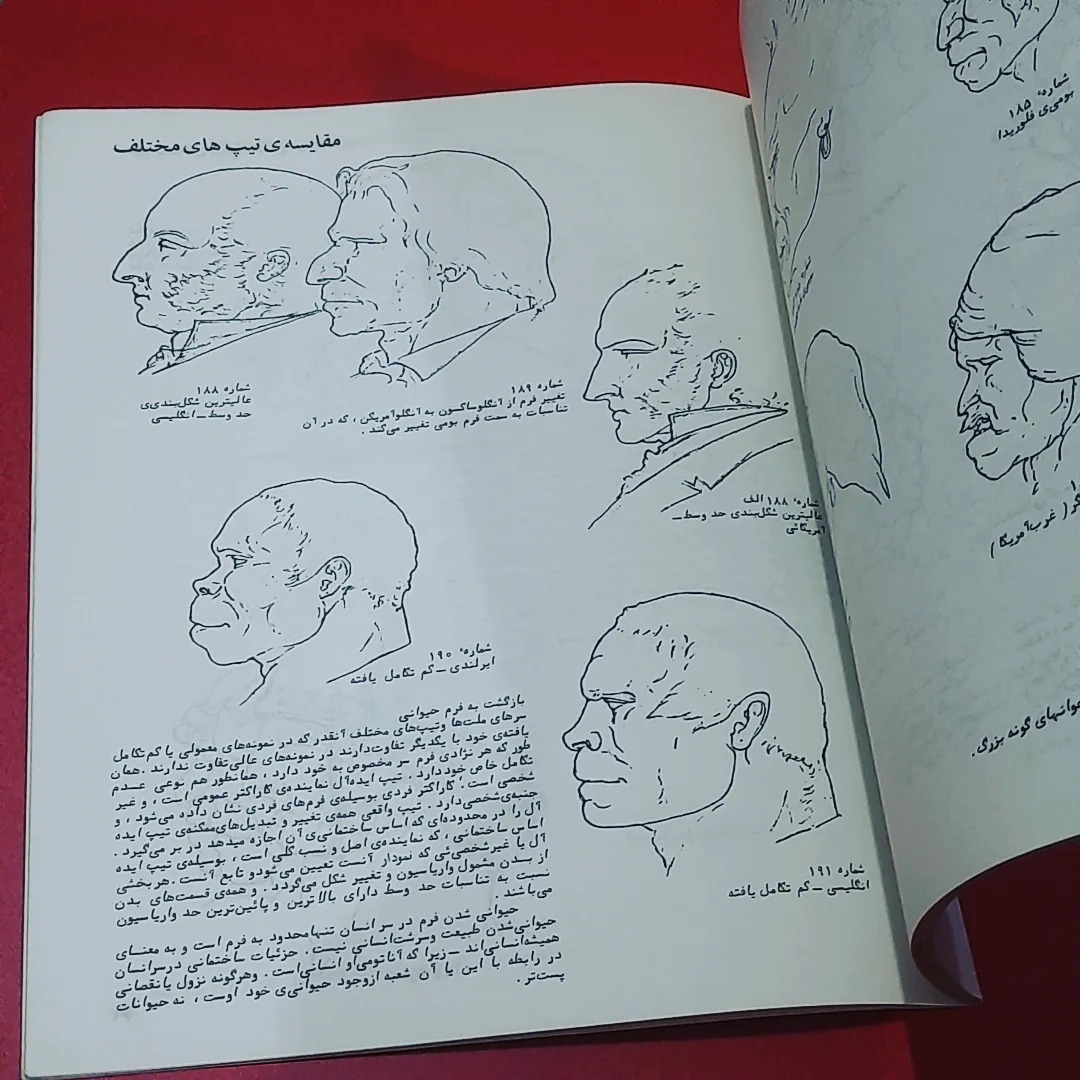 مقایسه‌ی تیپ های مختلف
شماره ۱۸۸
عالیترین شکل‌بندی‌ی
حد وسط ــ انگلیسی
شماره ۱۸۹
تغییر فرم از آنگلوساکسون به آنگلوآمریکن ، که در آن
تناسبات به سمت فرم بومی تغییر می‌کند .
شماره ۱۸۸ الف
عالیترین شکل‌بندی حد وسط ــ
آمریکائی
شماره ۱۹۰
ایرلندی ــ کم تکامل یافته
شماره ۱۹۱
انگلیسی ــ کم تکامل یافته
بازگشت به فرم حیوانی
سرهای ملت‌ها وتیپ‌های مختلف آنقدر که در نمونه‌های معمولی یا کم‌تکامل
یافته‌ی خود با یکدیگر تفاوت‌دارند در نمونه‌های عالی‌تفاوت ندارند . همان
طور که هر نژادی فرم سر مخصوص به خود دارد ، همانطور هم نوعی عدم
تکامل خاص خوددارد . تیپ ایده‌آل نماینده‌ی کاراکتر عمومی است ، و غیر
شخصی است . کاراکتر فردی بوسیله‌ی فرم‌های فردی نشان داده می‌شود ، و
جنبه‌ی‌شخصی‌دارد . تیپ واقعی همه‌ی تغییر و تبدیل‌های‌ممکنه‌ی تیپ ایده
آل را در محدوده‌ای که اساس ساختمانی‌ی آن اجازه میدهد در بر می‌گیرد .
اساس ساختمانی ، که نماینده‌ی اصل و نسب کلی است ، بوسیله‌ی تیپ ایده
آل یا غیرشخصی‌ئی که نمودار آنست تعیین می‌شودو تابع آنست . هر بخشی
از بدن مشمول واریاسیون و تغییر شکل می‌گردد . و همه‌ی قسمت‌های بدن
نسبت به تناسبات حد وسط دارای بالاترین و پائین‌ترین حد واریاسیون
می‌باشند .
حیوانی شدن فرم در سر انسان تنهامحدود به فرم است و به معنای
حیوانی‌شدن طبیعت وسرشت‌انسانی نیست . جزئیات ساختمانی درسرانسان
همیشه‌انسانی‌اند ــ زیرا که آناتومی‌او انسانی‌است . وهرگونه نزول یانقصانی
در رابطه با این یا آن شعبه ازوجود حیوانی‌ی خود اوست ، نه حیوانات
پست‌تر .
شماره ۱۸۵
بومی‌ی فلوریدا
( غرب‌آمریکا )
گونه بزرگ .